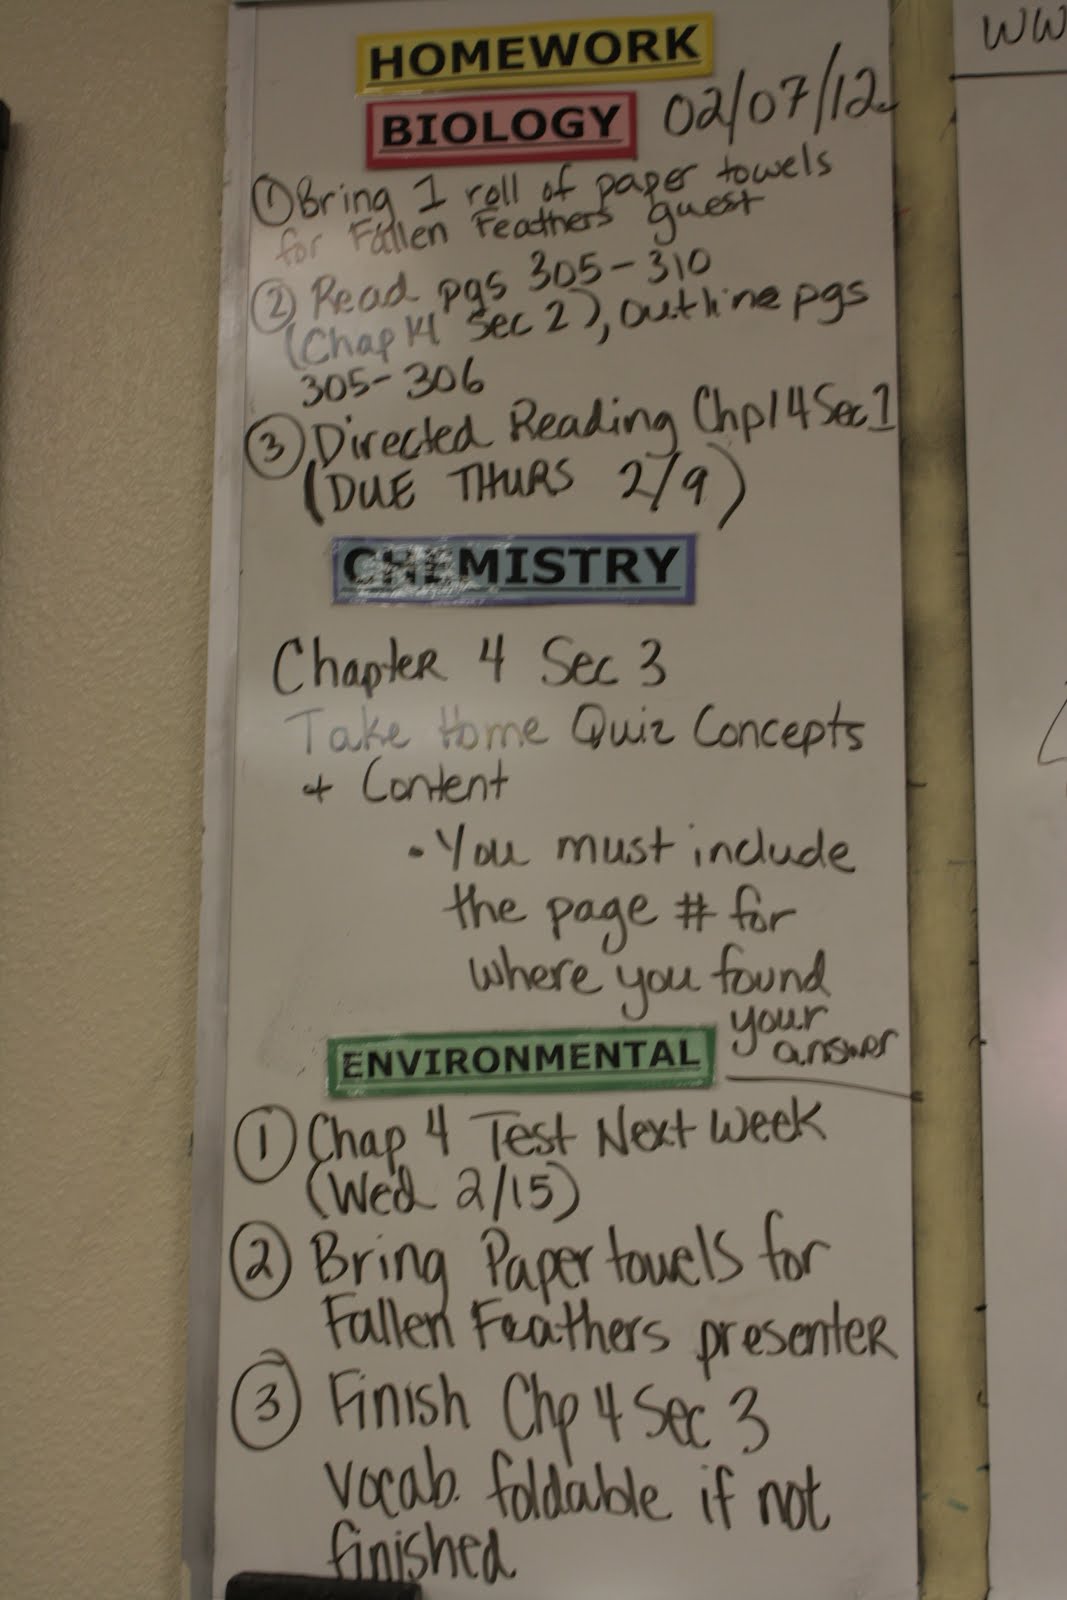 HOMEWORK
BIOLOGY 02/07/12
① Bring 1 roll of paper towels
for Fallen Feathers guest
② Read pgs 305-310
(Chap 14 Sec 2), outline pgs
305-306
③ Directed Reading Chp 14 Sec 1
(DUE THURS 2/9)
CHEMISTRY
Chapter 4 Sec 3
Take Home Quiz Concepts
+ Content
• You must include
the page # for
where you found
your
answer
ENVIRONMENTAL
① Chap 4 Test Next Week
(Wed 2/15)
② Bring Paper towels for
Fallen Feathers presenter
③ Finish Chp 4 Sec 3
vocab. foldable if not
finished